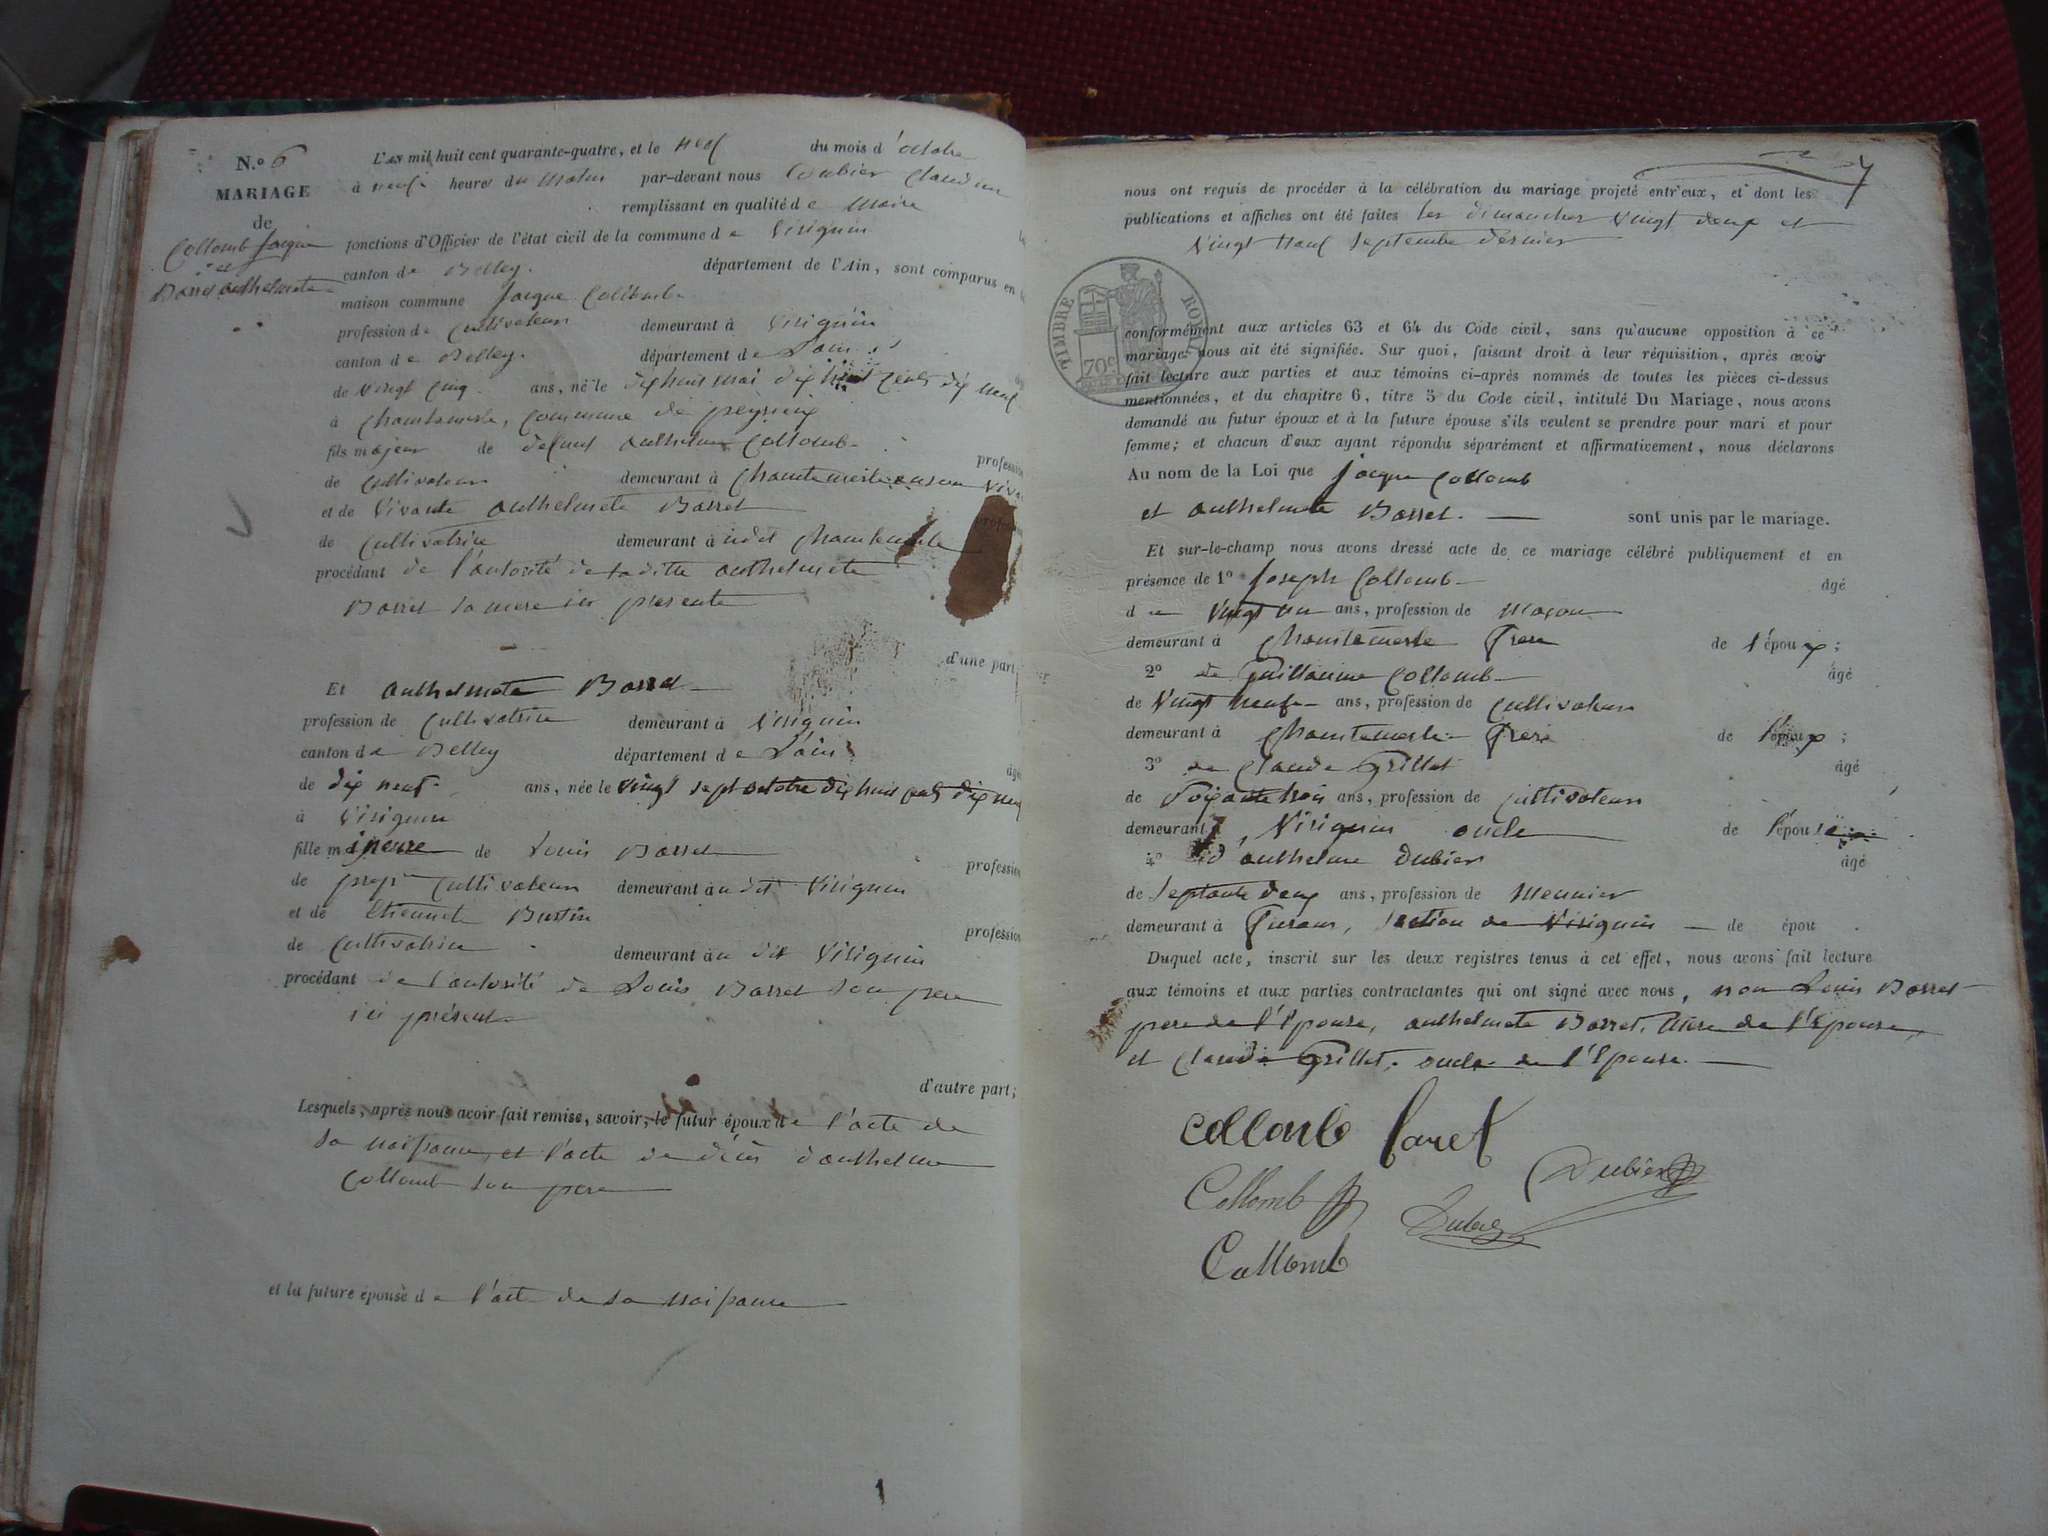 N.o 6
MARIAGE
de
Collomb Jacque
et
Barret anthelmete
L'an mil huit cent quarante-quatre, et le neuf du mois d'octobre
à neuf heures du matin par-devant nous Dubier
remplissant en qualité de Maire
fonctions d'Officier de l'état civil de la commune de Virignin
canton de Belley. département de l'Ain, sont comparus en
maison commune Jacque Collomb
profession de cultivateur demeurant à Virignin
canton de Belley. département de L'ain
de vingt cinq ans, né le dix huit mai dix huit cents dix neuf
à Chantemerle, commune de peyrieu
fils majeur de defunt anthelme Collomb
profession
de cultivateur demeurant à Chantemerle
et de vivante anthelmete Barret
de cultivatrice demeurant à udit Chantemerle
procédant de l'autorité de laditte anthelmete
Barret sa mere ici presente
d'une part;
Et anthelmete Barret
profession de cultivatrice demeurant à Virignin
canton de Belley département de L'ain
âgé
de dix neuf ans, née le vingt sept octobre dix huit cents dix neuf
à Virignin
fille majeure de Louis Barret
profession
de propre cultivateur demeurant à u dit Virignin
et de Etiennete Bustin
profession
de cultivatrice demeurant à u dit Virignin
procédant de l'autorité de Louis Barret son pere
ici présent
d'autre part;
Lesquels, après nous avoir fait remise, savoir, le futur époux de l'acte de
sa naissance, et l'acte de décès d'anthelme
Collomb son pere
et la future épouse de l'acte de sa naissance
7
nous ont requis de procéder à la célébration du mariage projeté entr'eux, et dont les
publications et affiches ont été faites les dimanches vingt deux et
vingt neuf septembre dernier
TIMBRE ROYAL
70c
conformément aux articles 63 et 64 du Code civil, sans qu'aucune opposition à ce
mariage nous ait été signifiée. Sur quoi, faisant droit à leur réquisition, après avoir
fait lecture aux parties et aux témoins ci-après nommés de toutes les pièces ci-dessus
mentionnées, et du chapitre 6, titre 5 du Code civil, intitulé Du Mariage, nous avons
demandé au futur époux et à la future épouse s'ils veulent se prendre pour mari et pour
femme; et chacun d'eux ayant répondu séparément et affirmativement, nous déclarons
Au nom de la Loi que Jacque Collomb
et anthelmete Barret. sont unis par le mariage.
Et sur-le-champ nous avons dressé acte de ce mariage célébré publiquement et en
présence de 1º Joseph Collomb âgé
de vingt un ans, profession de maçon
demeurant à Chantemerle frere de l'époux;
2º de Guillaume Collomb âgé
de vingt neuf ans, profession de cultivateur
demeurant à Chantemerle frere de l'époux;
3º de Claude Grillet âgé
de soixante trois ans, profession de cultivateur
demeurant à Virignin oncle de l'épouse
4º d'anthelme Dubier âgé
de septante deux ans, profession de Meunier
demeurant à Furans, section de Virignin — de épou
Duquel acte, inscrit sur les deux registres tenus à cet effet, nous avons fait lecture
aux témoins et aux parties contractantes qui ont signé avec nous, non Louis Barret
pere de l'Epouse, anthelmete Barret, Mere de l'Epouse,
et Claude Grillet oncle de l'Epouse.
Collomb
Dubier
Collomb
Collomb
1